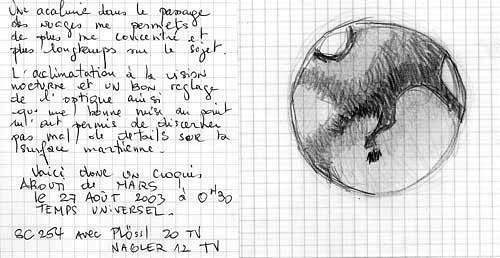 Une acalmie dans le passage
des nuages me permets
de plus me concentré et
plus longtemps sur le sujet.
L'acclimatation à la vision
nocturne et un bon réglage
de l'optique ainsi
que une bonne mise au point
m'ont permis de discerner
pas mal de détails sur la
surface martienne.
Voici donc un croquis
ABOUTI de MARS !
le 27 AOÛT 2003 à 0H30
TEMPS UNIVERSEL.
SC 254 avec PLÖSSL 20 TV
NAGLER 12 TV